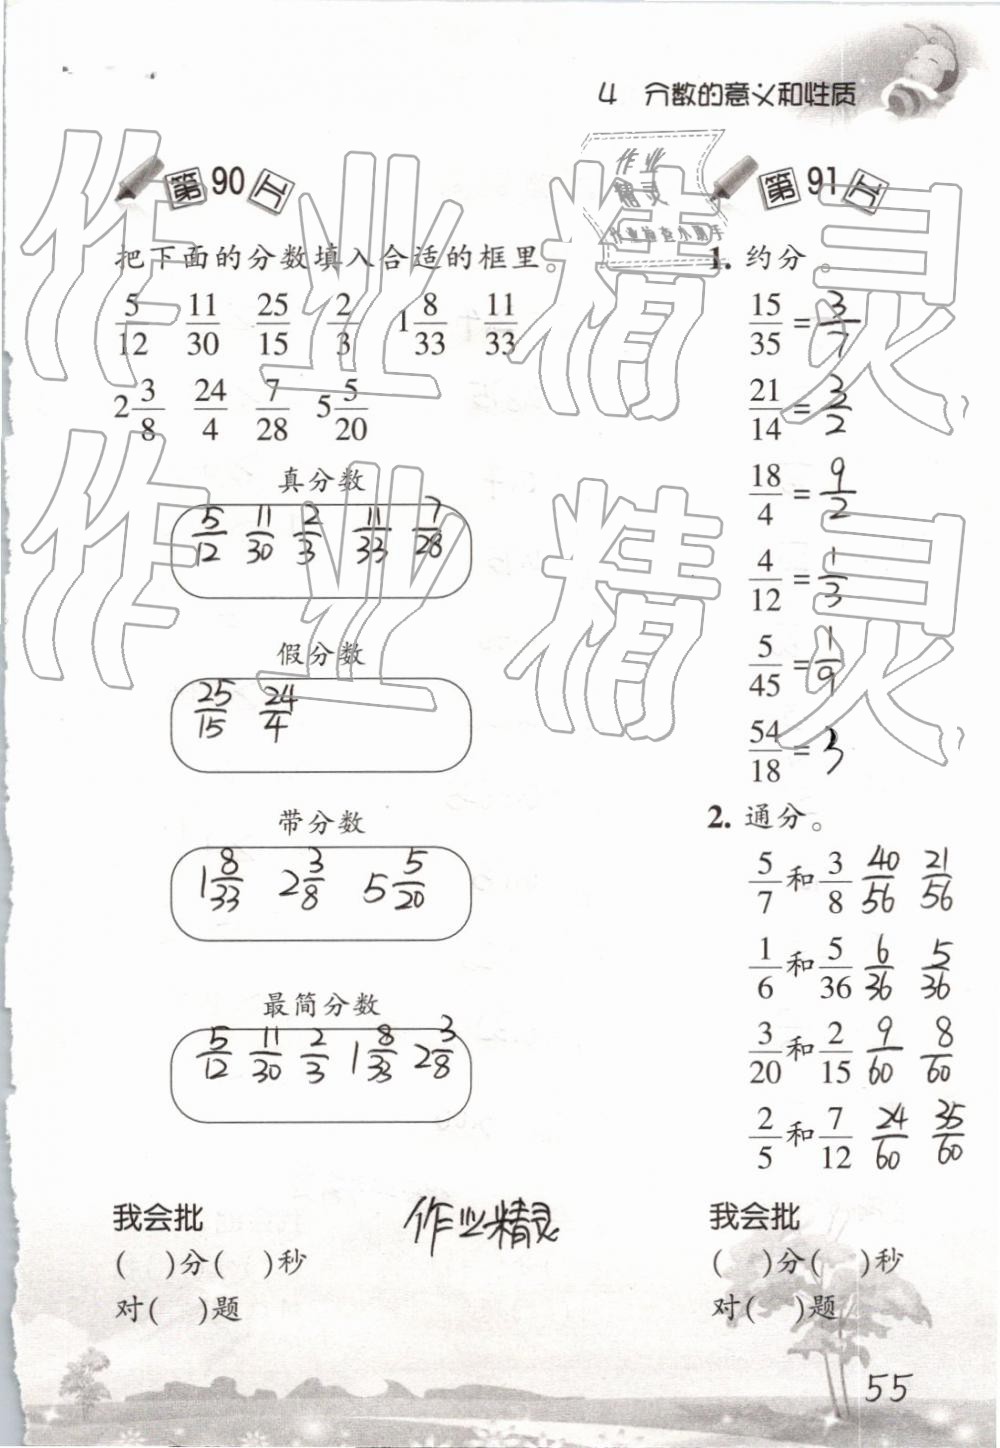 4 分数的意义和性质
第90页
把下面的分数填入合适的框里。
5/12 11/30 25/15 2/3 1 8/33 11/33
2 3/8 24/4 7/28 5 5/20
真分数
5/12 11/30 2/3 11/33 7/28
假分数
25/15 24/4
带分数
1 8/33 2 3/8 5 5/20
最简分数
5/12 11/30 2/3 1 8/33 2 3/8
我会批
( )分( )秒
对( )题
作业精灵
第91页
1. 约分。
15/35 = 3/7
21/14 = 3/2
18/4 = 9/2
4/12 = 1/3
5/45 = 1/9
54/18 = 3
2. 通分。
5/7 和 3/8 40/56 21/56
1/6 和 5/36 6/36 5/36
3/20 和 2/15 9/60 8/60
2/5 和 7/12 24/60 35/60
我会批
( )分( )秒
对( )题
55
作业精灵
作业精灵
作业
精灵
作业检查小助手